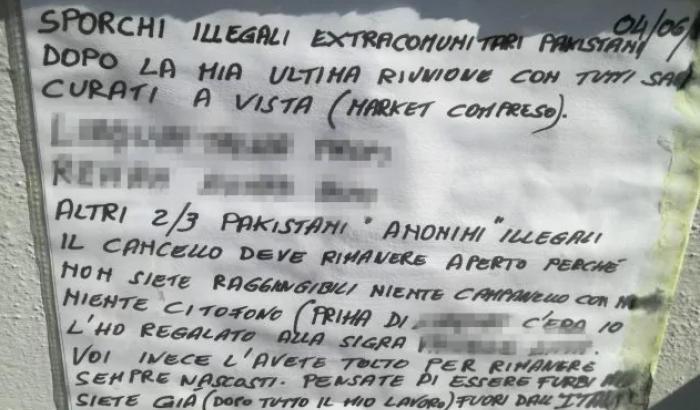 04/06/
SPORCHI ILLEGALI EXTRACOMUNITARI PAKISTANI
DOPO LA MIA ULTIMA RIUNIONE CON TUTTI
CURATI A VISTA (MARKET COMPRESO).
ALTRI 2/3 PAKISTANI "ANONIMI" ILLEGALI
IL CANCELLO DEVE RIMANERE APERTO PERCHÉ
NON SIETE RAGGIUNGIBILI NIENTE CAMPANELLO CON
NIENTE CITOFONO (PRIMA DI C'ERA IO
L'HO REGALATO ALLA SIGRA
VOI INECE L'AVETE TOLTO PER RIMANERE
SEMPRE NASCOSTI. PENSATE DI ESSERE FURBI
SIETE GIÀ (DOPO TUTTO IL MIO LAVORO) FUORI DALL'ITALI